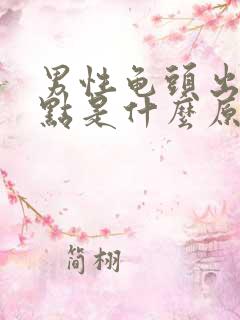 男性龟頭出
點是什麼原
簡栩